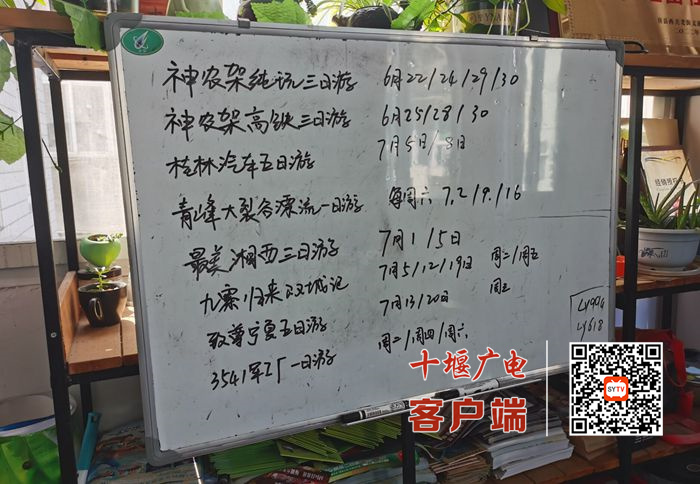 神农架纯玩三日游 6月22/24/29/30
神农架高铁三日游 6月25/28/30
桂林汽车五日游 7月5日/8日
青峰大裂谷漂流一日游 每周六 7.2/9./16
最美湘西三日游 7月1/5日
九寨归来双城记 7月5/12/19日 周二/周五
致尊宁夏五日游 7月13/20日 周三
3541军工厂一日游 周二/周四/周六
LY904
LY618
十堰广电
客户端
SYTV